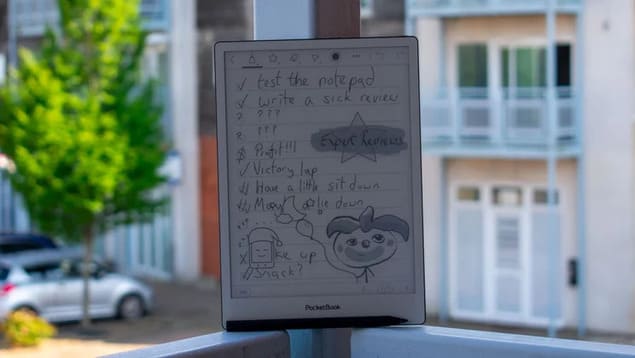 ✓ test the notepad
✓ write a sick review
? ???
? ???
Expert Reviews
$ Profit!!!
✓ Victory lap
Have a little sit down
lie down
ke up
Snack?
PocketBook